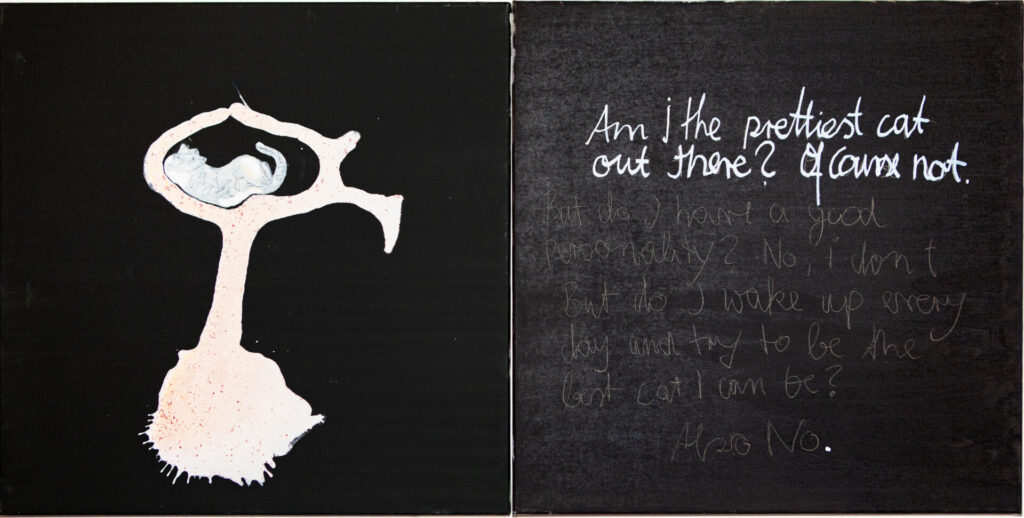 Am I the prettiest cat
out there? Of course not.
But do I have a good
personality? No, i don't
But do I wake up every
day and try to be the
best cat I can be?
Also No.